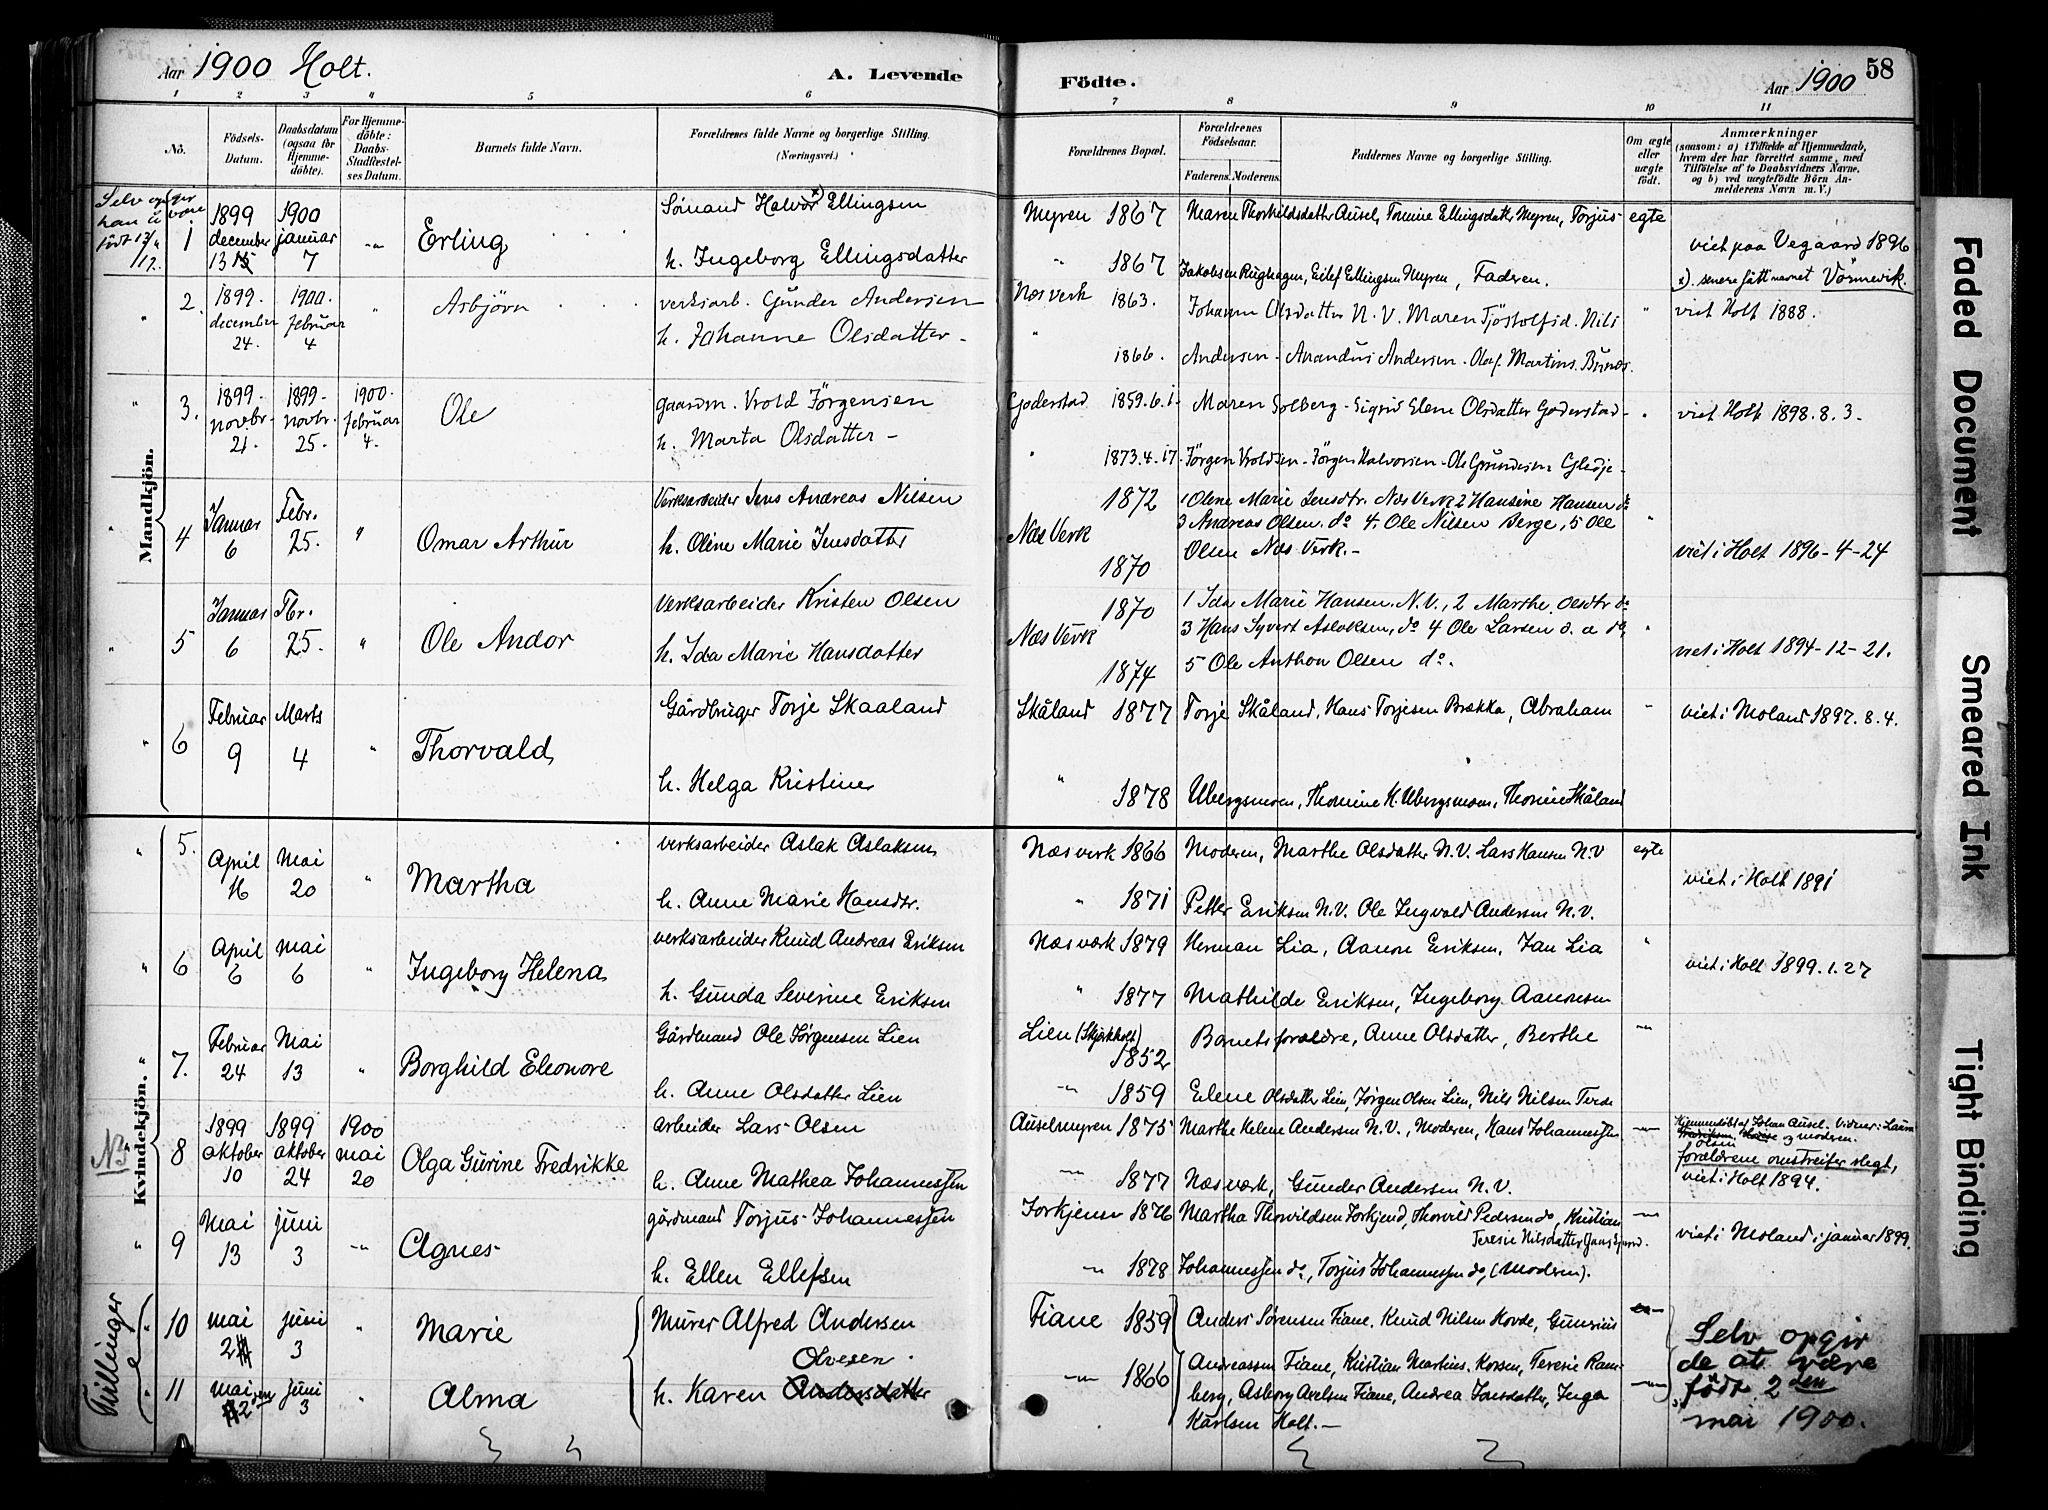 Aar 1900 Holt.
A. Levende
Födte.
Aar 1900
58
1 2 3 4 5 6 7 8 9 10 11
Nö.
Födsels-Datum.
Daabsdatum (ogsaa for Hjemme-döbte).
For Hjemme-döbte: Daabs-Stadfæstel-ses Datum.
Barnets fulde Navn.
Forældrenes fulde Navne og borgerlige Stilling.
(Næringsvei.)
Forældrenes Bopæl.
Forældrenes Födselsaar.
Faderens. Moderens.
Faddernes Navne og borgerlige Stilling.
Om ægte eller uægte födt.
Anmærkninger
(saasom: a) i Tilfælde af Hjemmedaab, hvem der har forrettet samme, med Tilföielse af to Daabsvidners Navne, og b) ved uægtefödte Börn An-melderens Navn m. V.)
Mandkjön.
1 1899 december 13 1900 januar 7 Erling
Sömand Halvor Ellingsen
h. Ingeborg Ellingsdatter
Myren 1867
" 1867
Maren Thorkildsdatter Ausel, Tomine Ellingsdatt, Myren, Torjus
Jakobsen Rughagen, Eilef Ellingsen Myren, Faderen.
egte
viet paa Vegaard 1896
x). senere fått navnet Vörmevik.
2. 1899. december 24. 1900. februar 4 " Asbjörn
verksarb. Gunder Andersen
h. Johanne Olsdatter -
Næs verk 1863.
" 1866.
Johann Olsdatter N. V. Maren Tjöstolfsd. Nils
Andersen - Anandus Andersen - Olaf Martins. Bunæs.
" viet Holt 1888.
3. 1899. novbr. 21. 1899. novbr. 25. 1900. februar 4. Ole
gaardm. Vrold Jörgensen
h. Marta Olsdatter -
Goderstad 1859.6.1.
" 1873.4.17.
Maren Solberg - Sigrid Elene Olsdatter Goderstad -
Jörgen Vroldsen - Jörgen Halvorsen - Ole Gundersen Glidje -
" viet Holt 1898.8.3.
4 Januar 6 Febr. 25. " Omar Arthur
Verksarbeider Jens Andreas Nilsen
h. Oline Marie Jensdatter
Næs Verk 1872
1870
1 Olene Marie Jensdtr. Næs Verk 2 Hansine Hansen do
3 Andreas Olsen. do 4. Ole Nilsen Berge, 5 Ole
Olsen Næs Verk. -
" viet i Holt 1896-4-24
5 Januar 6 Fbr. 25. " Ole Andor
Verksarbeider Kristen Olsen
h. Ida Marie Hansdatter
Næs Verk 1870
1874
1 Ida Marie Hansen. N.V., 2 Marthe. Olsdtr do
3 Hans Syvert Aslaksen, do 4 Ole Larsen d. æ do,
5 Ole Anthon Olsen do.
" viet i Holt 1894-12-21.
6 Februar 9 Marts 4 " Thorvald
Gårdbruger Torje Skaaland
h. Helga Kristine
Skåland 1877
" 1878
Torje Skåland, Hans Torjesen Brække, Abraham
Ubergsmoen, Thomine K. Ubergsmoen, Thomine Skåland
" viet i Moland 1897.8.4.
Kvindekjön.
5. April 16 Mai 20 " Martha
verksarbeider Aslak Aslaksen
h. Anne Marie Hansdtr.
Næs verk 1866
" 1871
Moderen, Marthe Olsdatter N.V. Lars Hansen N.V
Petter Eriksen N.V. Ole Ingvald Andersen N.V.
egte
viet i Holt 1891
6 April 6 Mai 6 " Ingeborg Helena
verksarbeider Knud Andreas Eriksen
h. Gunda Severine Eriksen
Næs værk 1879
" 1877
Herman Lia, Aanon Eriksen, Jan Lia
Mathilde Eriksen, Ingeborg Aanonsen
" viet i Holt 1899.1.27
7. Februar 24 Mai 13 " Borghild Eleonore
Gårdmand Ole Jörgensen Lien
h. Anne Olsdatter Lien
Lien (Skjerkholt) 1852
" 1859
Barnets forældre, Anne Olsdatter, Berthe
Elene Olsdatter Lien, Jörgen Olsen Lien, Nils Nilsen Tvede
8 1899 oktober 10 1899 oktober 24 1900 mai 20 Olga Gurine Fredrikke
arbeider Lars Olsen
h. Anne Mathea Johannessen
Auselmyren 1875
" 1877
Marthe Helene Andersen N.V., Moderen, Hans Johannessen
Næsværk, Gunder Andersen N.V.
Hjemmedöbt af Johan Ausel. Vidner: Laura
Olsen og moderen.
forældrene omstreifer slegt,
viet i Holt 1894.
9 Mai 13 juni 3 " Agnes
gårdmand Torjus Johannessen
h. Ellen Ellefsen
1876
" 1878
Martha Thorvildsen Torkjend, Thorvild Pedersen do, Kristian
Teresie Nilsdatter
Johannessen do, Torjus Johannessen do, (Moderen).
viet i Moland i januar 1899.
Tvillinger
10 mai 2 juni 3 " Marie
11 mai 2 juni 3 " Alma
Murer Alfred Andersen
Olvesen.
h. Karen Andersdatter
Fiane 1859
" 1866
Anders Sörensen Fiane. Knud Nilsen Hovde, Gunerius
Andreassen Fiane, Kristian Martius. Korsen, Teresie Ram-
berg, Asborg Axelsen Fiane, Andrea Jonsdatter, Inga
Karlsen Holt. -
Selv opgir
de at være
født 2den
mai 1900.
Faded Document
Smeared Ink
Tight Binding